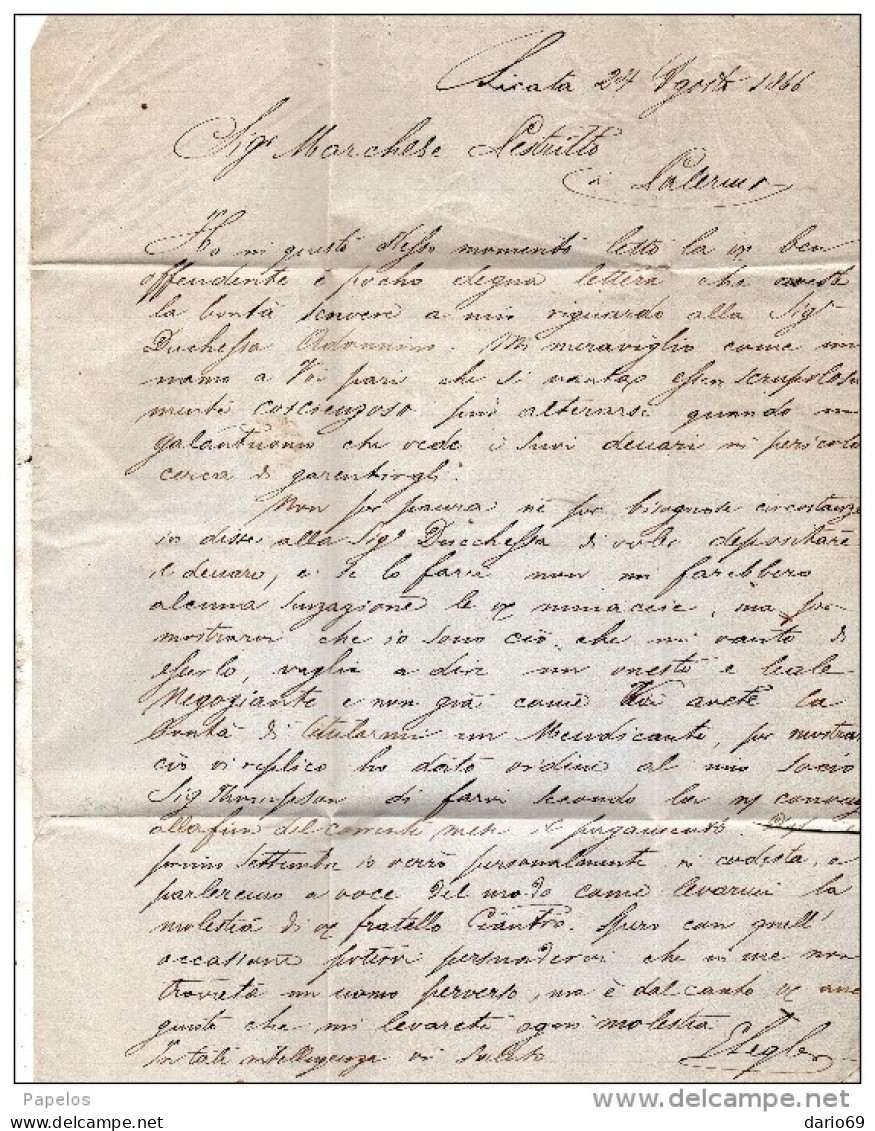 Licata 24 Agosto 1866
Sigr Marchese
di Palermo
Ho in questo stesso momento letto la ben
offendente e pocho degna lettera che aveste
la bontà scrivere a mio riguardo alla Sigra
Duchessa Adonnino. Mi meraviglio come un
uomo a Voi pari che si vanta esser scrupolosa
mente coscienzoso può alterarsi quando un
galantuomo che vede i suoi denari in pericolo
cerca di garentirgli.
Non per paura nè per bisognose circostanze
io dissi alla Sigra Duchessa di voler depositare
il denaro, e se lo farei non mi farebbero
alcuna le minaccie, ma per
mostrarvi che io sono ciò che mi vanto di
esserlo, voglio dire un onesto e leale
Negoziante e non già come Voi avete la
bontà di titularmi un Mendicante, per mostrar
ciò vi replico ho dato ordine al mio socio
Sig Thompson di farvi secondo la
alla fin del corrente mese il pagamento.
primo Settembre io verrò personalmente in codesta, e
parleremo a voce del modo come levarmi la
molestia di fratello Ciantro. Spero con quell'
occasione potervi persuadervi che in me non
trovrete un uomo perverso, ma è dal canto
giusto che mi levarete ogni molestia
In tale intelligenza vi saluto
Papelos
delcampe.net
dario69